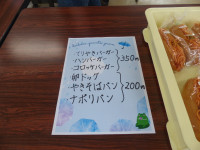 てりやきバーガー
ハンバーガー
コロッケバーガー
350円
卵ドッグ
やきそばパン
ナポリパン
200円